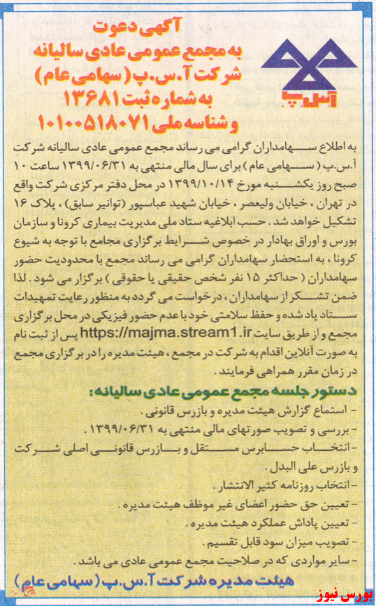 آگهی دعوت
به مجمع عمومی عادی سالیانه
شرکت آ.س.پ (سهامی عام)
به شماره ثبت ۱۳۶۸۱
و شناسه ملی ۱۰۱۰۰۵۱۸۰۷۱
آ.س.پ
به اطلاع سهامداران گرامی می رساند مجمع عمومی عادی سالیانه شرکت
آ.س.پ (سهامی عام) برای سال مالی منتهی به ۱۳۹۹/۰۶/۳۱ ساعت ۱۰
صبح روز یکشنبه مورخ ۱۳۹۹/۱۰/۱۴ در محل دفتر مرکزی شرکت واقع
در تهران ، خیابان ولیعصر ، خیابان شهید عباسپور (توانیر سابق) ، پلاک ۱۶
تشکیل خواهد شد . حسب ابلاغیه ستاد ملی مدیریت بیماری کرونا و سازمان
بورس و اوراق بهادار در خصوص شرایط برگزاری مجامع با توجه به شیوع
کرونا ، به استحضار سهامداران گرامی می رساند مجمع با محدودیت حضور
سهامداران (حداکثر ۱۵ نفر شخص حقیقی یا حقوقی) برگزار می شود . لذا
ضمن تشکر از سهامداران ، درخواست می گردد به منظور رعایت تمهیدات
ستاد یاد شده و حفظ سلامتی خود با عدم حضور فیزیکی در محل برگزاری
مجمع و از طریق سایت https://majma.stream1.ir پس از ثبت نام
به صورت آنلاین اقدام به شرکت در مجمع ، هیئت مدیره را در برگزاری مجمع
در زمان مقرر همراهی فرمایند .
دستور جلسه مجمع عمومی عادی سالیانه :
- استماع گزارش هیئت مدیره و بازرس قانونی .
- بررسی و تصویب صورتهای مالی منتهی به ۱۳۹۹/۰۶/۳۱ .
- انتخاب حسابرس مستقل و بازرس قانونی اصلی شرکت
و بازرس علی البدل .
- انتخاب روزنامه کثیر الانتشار .
- تعیین حق حضور اعضای غیر موظف هیئت مدیره .
- تعیین پاداش عملکرد هیئت مدیره .
- تصویب میزان سود قابل تقسیم .
- سایر مواردی که در صلاحیت مجمع عمومی عادی می باشد .
هیئت مدیره شرکت آ.س.پ (سهامی عام)
بورس نیوز